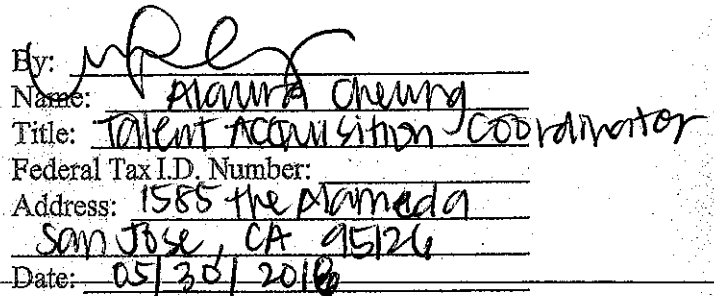 By:
Name: Alaura Cheung
Title: Talent Acquisition Coordinator
Federal Tax I.D. Number:
Address: 1585 the Alameda
San Jose, CA 95126
Date: 05/30/2018